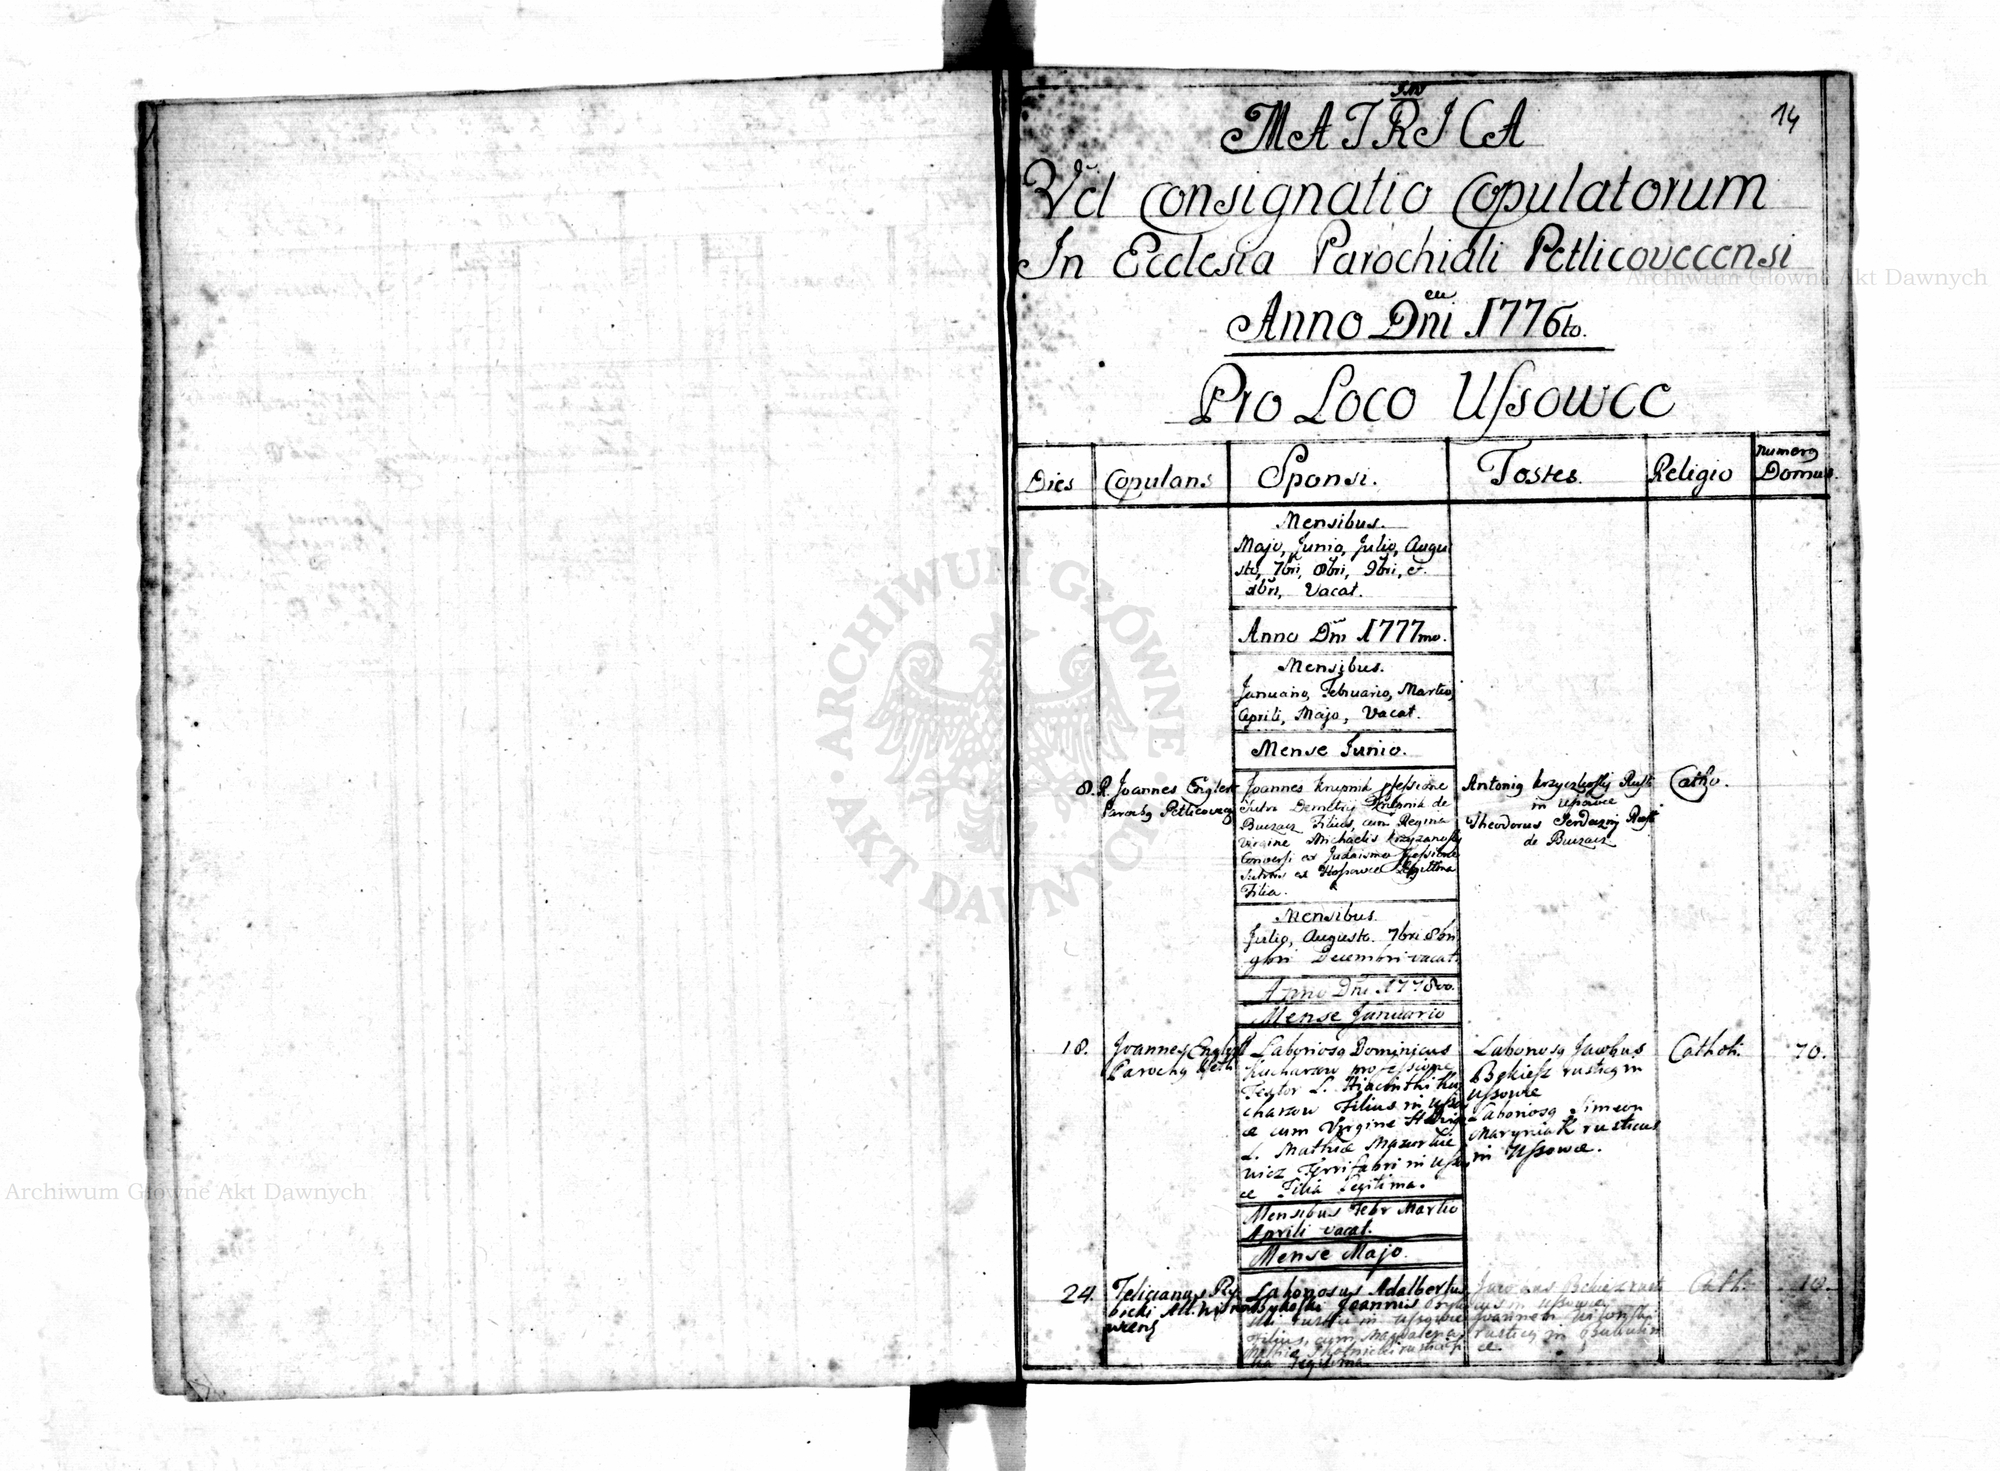 14
MATRICA
Vel Consignatio Copulatorum
In Ecclesia Parochiali Petlicovecensi
Anno Dni 1776to.
Pro Loco Ussowce
Dies
Copulans
Sponsi.
Testes.
Religio
numerg
Domus.
Mensibus.
Majo, Junio, Julio, Augu
sto, 7bri, 8bri, 9bri, et
xbri, Vacat.
Anno Dni 1777mo.
Mensibus.
Januario, Februario, Martio,
Aprili, Majo, Vacat.
Mense Junio.
8.
R. Joannes Englert
Parochg Petlicovecg
Joannes Krupnik pfessione
Sutor Demetrij Krupnik de
Buczacz Filius, cum Regina
Virgine Michaelis Krzyzanosky
Conversi ex Judaismo
Sutoris ex Legittima
Filia.
Antonig Rust
in Ussowce
Theodorus Rust
de Buczacz
Catho.
Mensibus.
Julio, Augusto. 7bri 8bri
9bri Decembri vacat.
Anno Dni 1778vo.
Mense Januario
18.
Joanneg Englert
Parochg Petli
Laboriosg Dominicus
Kucharow professione
Textor L. Hiacinthi Ku
charow Filius in Usso
ce cum Virgine
L. Mathiæ Mazurkie
wicz Ferrifabri in Usso
ce Filia Legitima.
Laboriosg Jacobus
Bekiesz rusticg in
Ussowce
Laboriosg Simeon
Maryniak rusticus
in Ussowce.
Catholi.
70.
Mensibus Febr Martio
Aprili vacat.
Mense Majo.
24.
Felicianus Ry
bicki
Laboriosus Adalbertus
Joannis
rustici in Ussowce
Filius, cum Magdalena
Mathiæ rustici
Legitima
Jacobus Bekiesz rusti
cus in Ussowce
Joannes
rusticg in
ce.
Cath.
10.
Archiwum Główne Akt Dawnych
Archiwum Główne Akt Dawnych
ARCHIWUM GŁÓWNE
AKT DAWNYCH